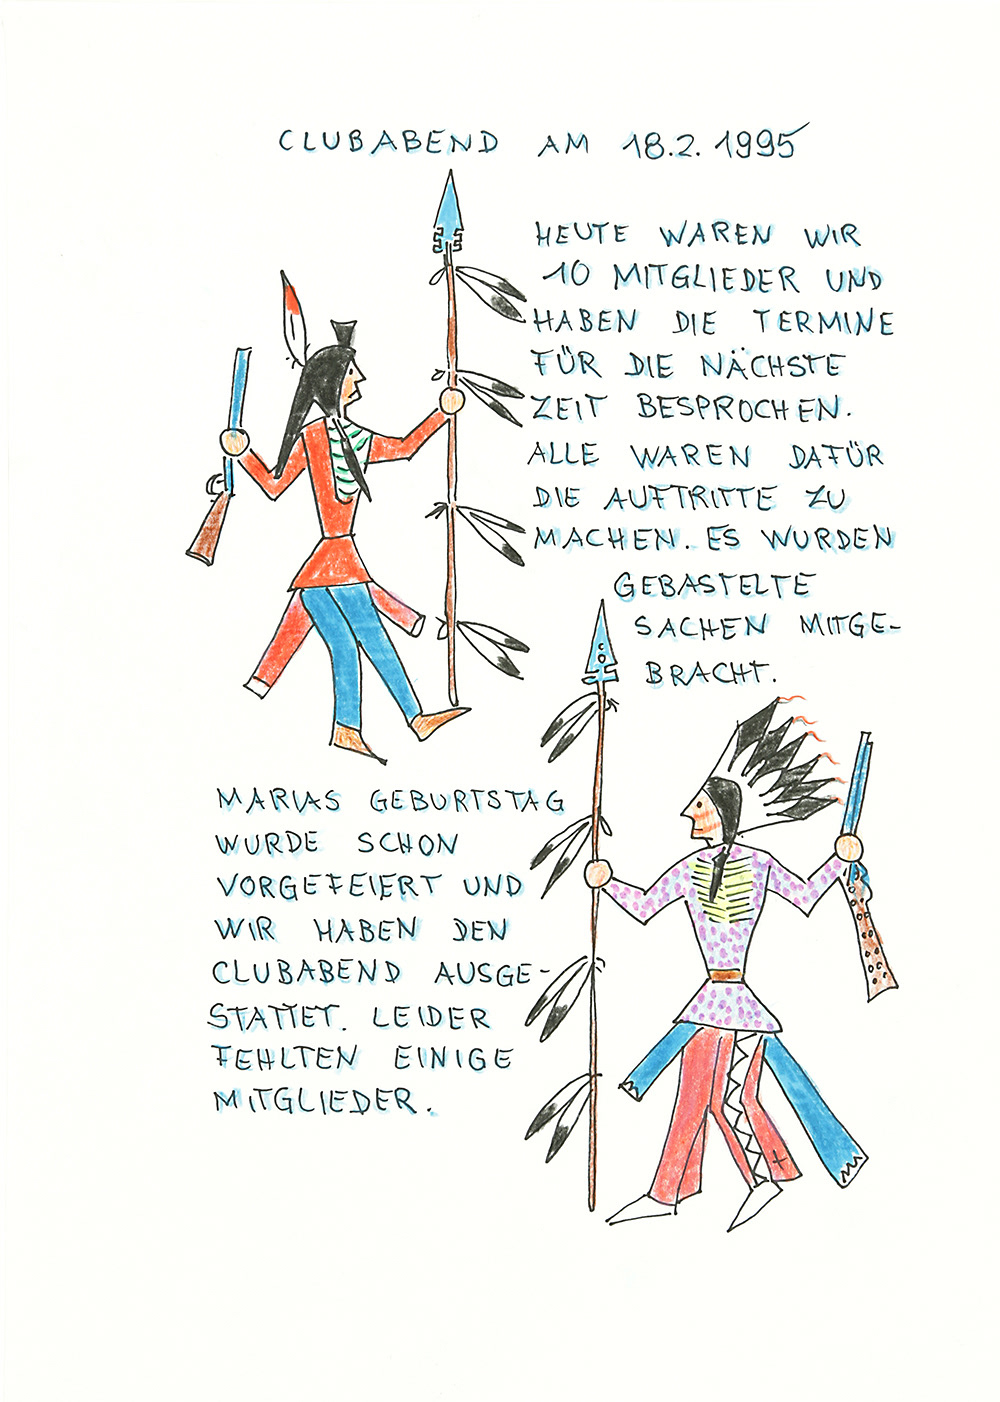 CLUBABEND AM 18.2.1995
HEUTE WAREN WIR
10 MITGLIEDER UND
HABEN DIE TERMINE
FÜR DIE NÄCHSTE
ZEIT BESPROCHEN.
ALLE WAREN DAFÜR
DIE AUFTRITTE ZU
MACHEN. ES WURDEN
GEBASTELTE
SACHEN MITGE-
BRACHT.
MARIAS GEBURTSTAG
WURDE SCHON
VORGEFEIERT UND
WIR HABEN DEN
CLUBABEND AUSGE-
STATTET. LEIDER
FEHLTEN EINIGE
MITGLIEDER.